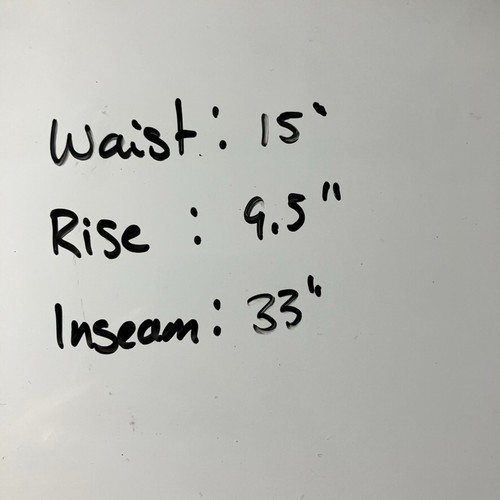 Waist: 15"
Rise : 9.5"
Inseam: 33"